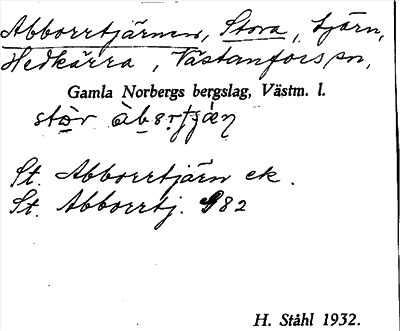 Abborrtjärnen, Stora, tjärn,
Hedkärra, Västanfors sn,
Gamla Norbergs bergslag, Västm. l.
St. Abborrtjärn ek.
St. Abborrtj. 982
H. Ståhl 1932.